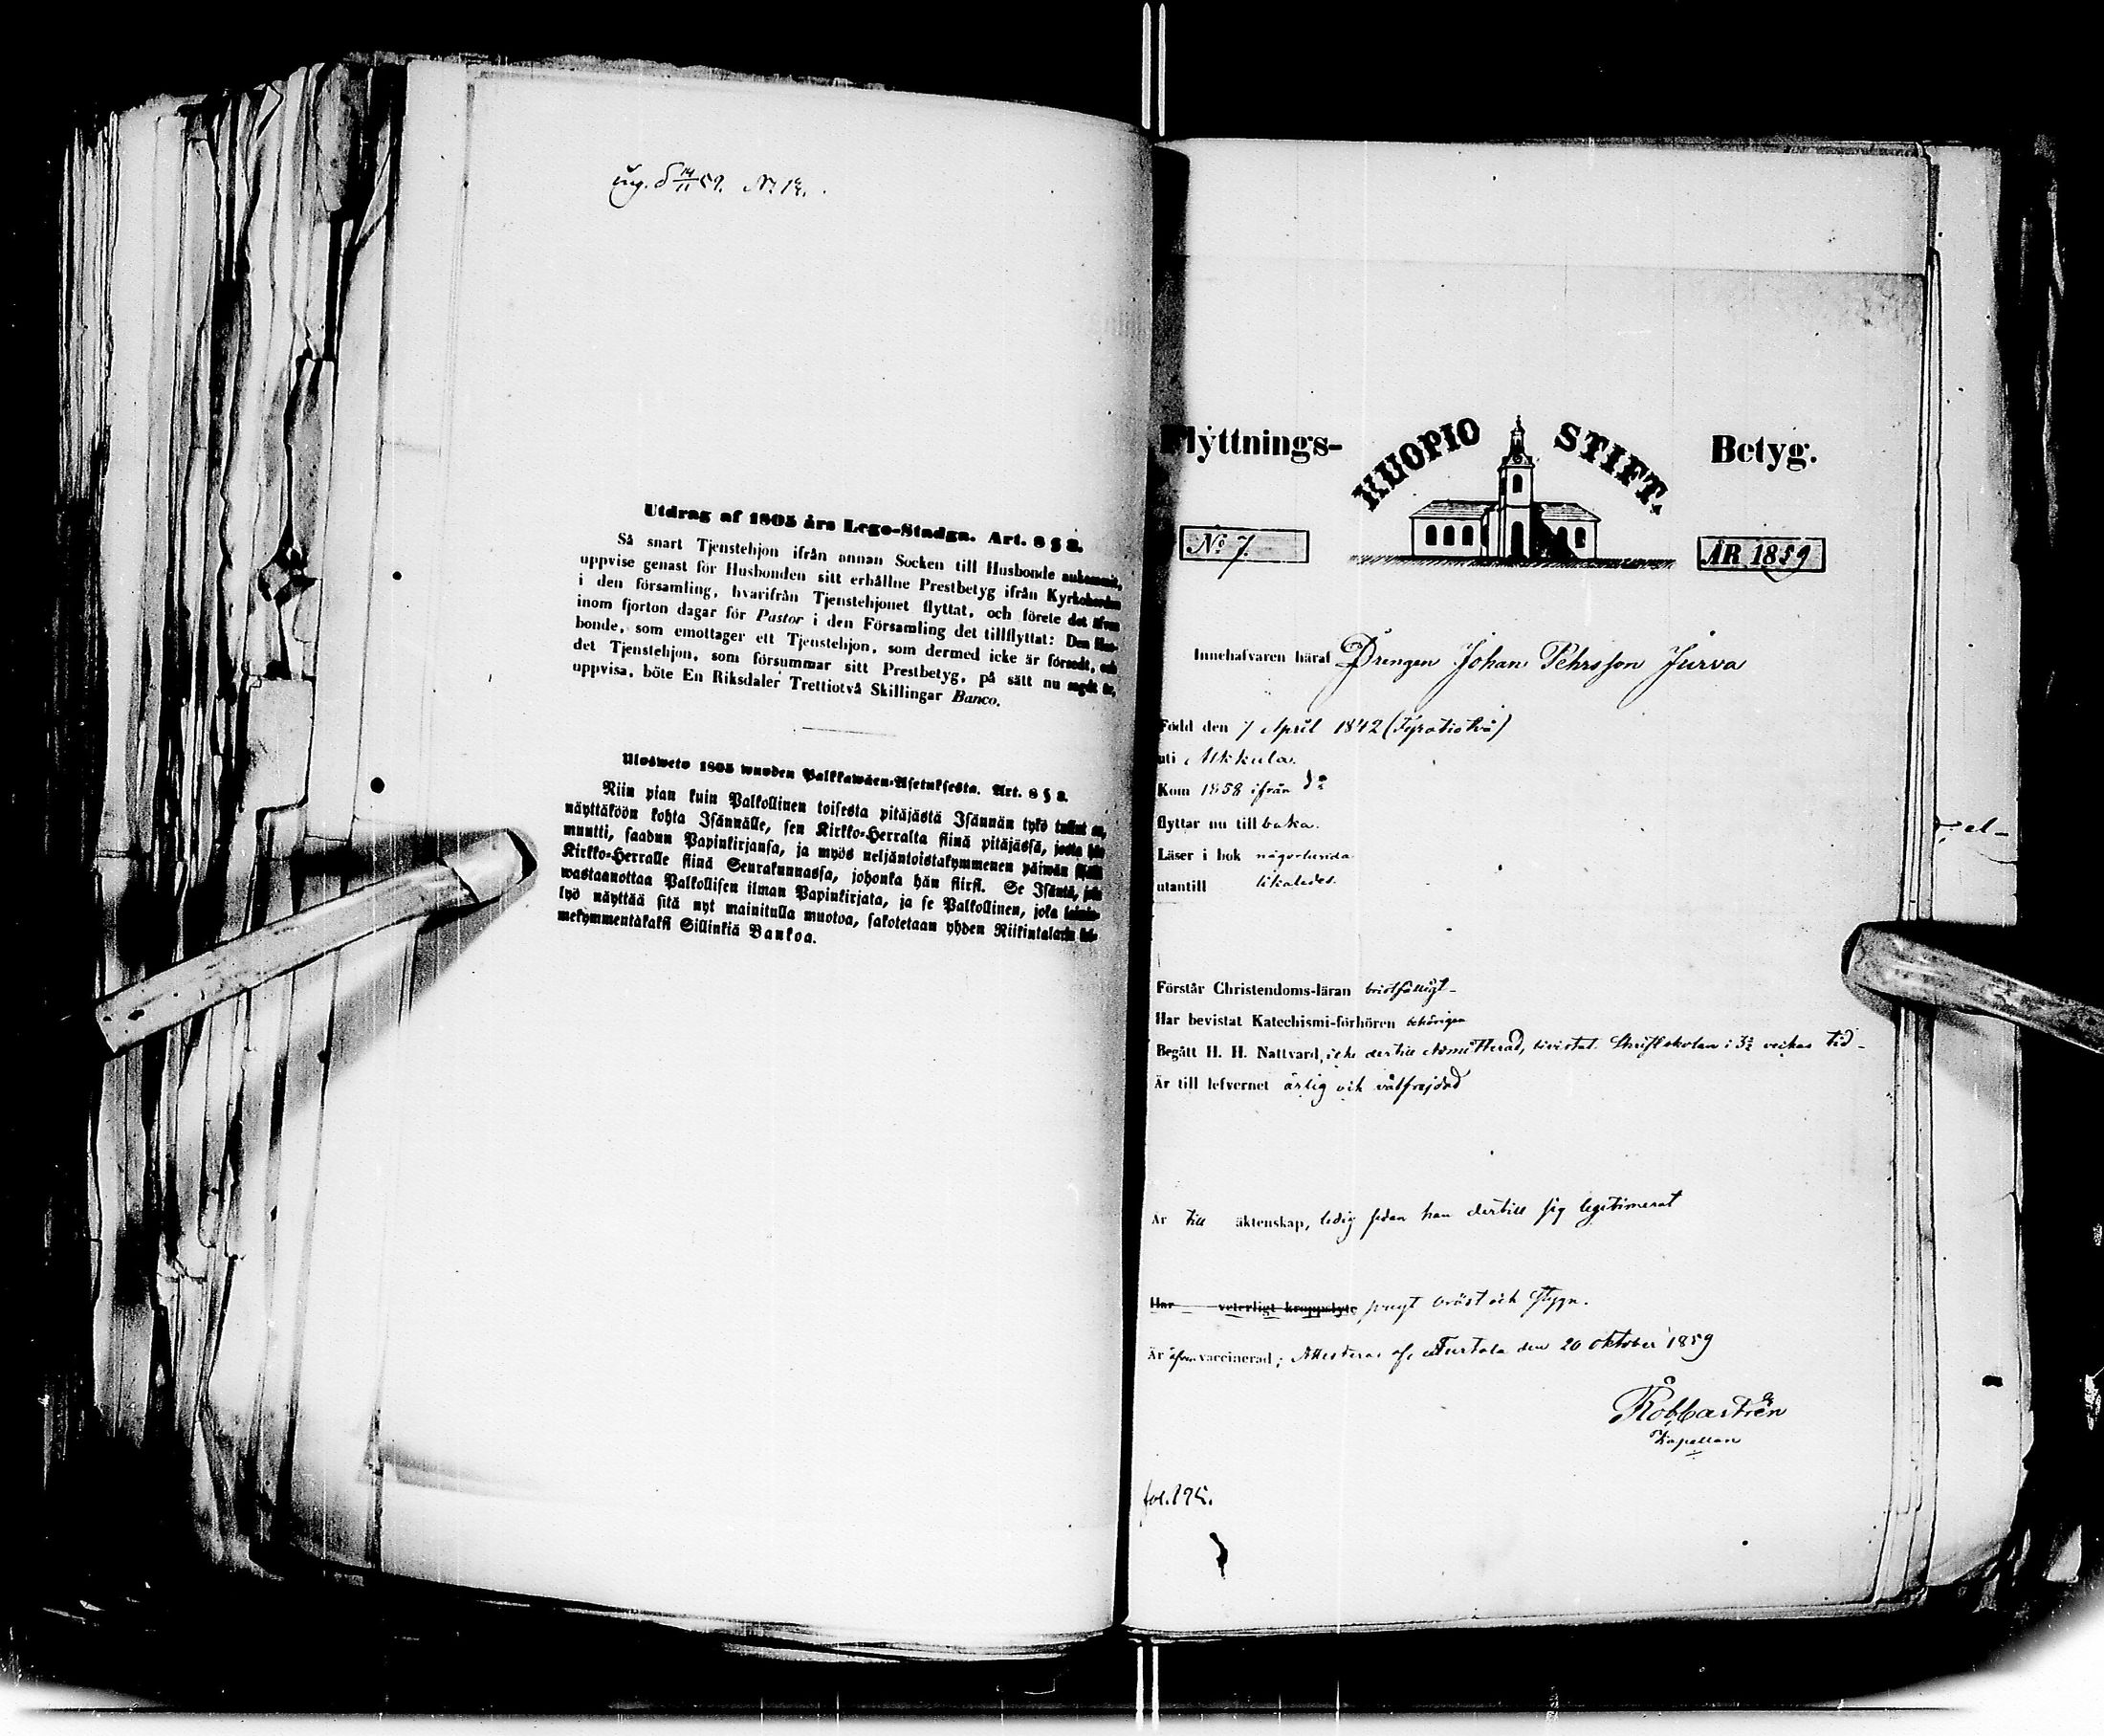 ug. d 14/11 59. No 12.
Utdrag af 1805 års Lego-Stadga. Art. 8 § 3.
Så snart Tjenstehjon ifrån annan Socken till Husbonde ankommit,
uppvise genast för Husbonden sitt erhållne Prestbetyg ifrån Kyrkoherden
i den församling, hvarifrån Tjenstehjonet flyttat, och förete det äfven
inom fjorton dagar för Pastor i den Församling det tillflyttat: Den Hus-
bonde, som emottager ett Tjenstehjon, som dermed icke är försedt, och
det Tjenstehjon, som försummar sitt Prestbetyg, på sätt nu sagdt är,
uppvisa, böte En Riksdaler Trettiotvå Skillingar Banco.
Ulosweto 1805 wuoden Palkkawäen-Asetuksesta. Art. 8 § 3.
Niin pian kuin Palkollinen toisesta pitäjästä Isännän tykö tullut on,
näyttäköön kohta Isännälle, sen Kirkko-Herralta siinä pitäjässä, josta hän
muutti, saadun Papinkirjansa, ja myös neljäntoistakymmenen päiwän sisällä
Kirkko-Herralle siinä Seurakunnassa, johonka hän siirsi. Se Isäntä, joka
wastaanottaa Palkollisen ilman Papinkirjata, ja se Palkollinen, joka laimin-
lyö näyttää sitä nyt mainitulla muotoa, sakotetaan yhden Riikintalarin kol-
mekymmentäkaksi Sillinkiä Bankoa.
Flyttnings- KUOPIO STIFT. Betyg.
No 7. ÅR 1859
Innehafvaren häraf Drengen Johan Pehrsson Jurva
Född den 7 April 1842 (Fyratiotvå)
uti Alkkula.
Kom 1858 ifrån do
flyttar nu till baka.
Läser i bok någorlunda
utantill likaledes.
Förstår Christendoms-läran bristfälligt-
Har bevistat Katechismi-förhören behörigen
Begått H. H. Nattvard, icke dertill Admitterad, bivistat Skriftskolan i 3 veckas tid-
Är till lefvernet ärlig och välfrejdad
Är till äktenskap, ledig sedan han dertill sig legitimerat
Har veterligt kroppslyte svagt bröst och
Är äfven vaccinerad; Attesteras af. Turtola den 20 Oktober 1859
Rob Castrén
Kapellan
fol. 195.
el-